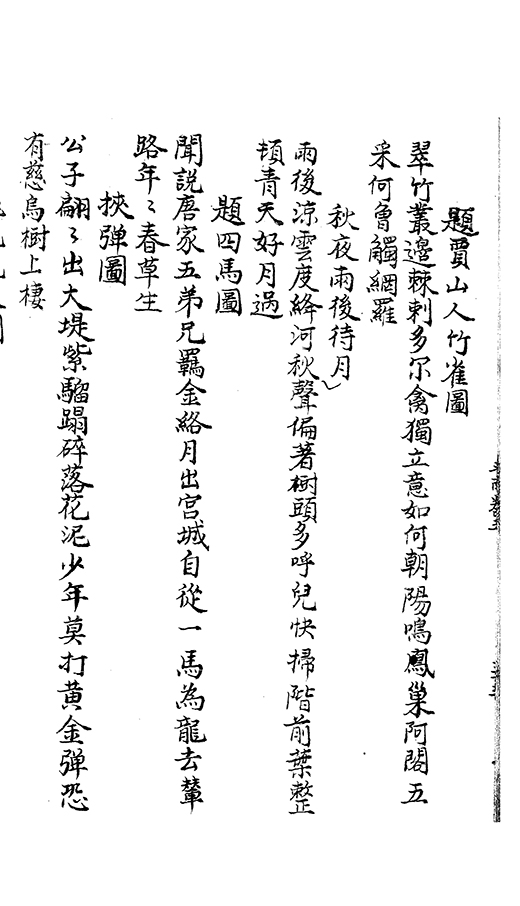 題賈山人竹雀圖
翠竹叢邊棘刺多尔禽獨立意如何朝陽鳴鳳巢阿閣五
采何曾觸網羅
秋夜雨後待月
雨後涼雲度絳河秋聲偏著樹頭多呼兒快掃階前葉整
頓青天好月過
題四馬圖
聞説唐家五弟兄羈金絡月出宮城自從一馬為龍去輦
路年〻春草生
挾弹圖
公子翩〻出大堤紫騮蹋碎落花泥少年莫打黄金弹恐
有慈烏樹上棲